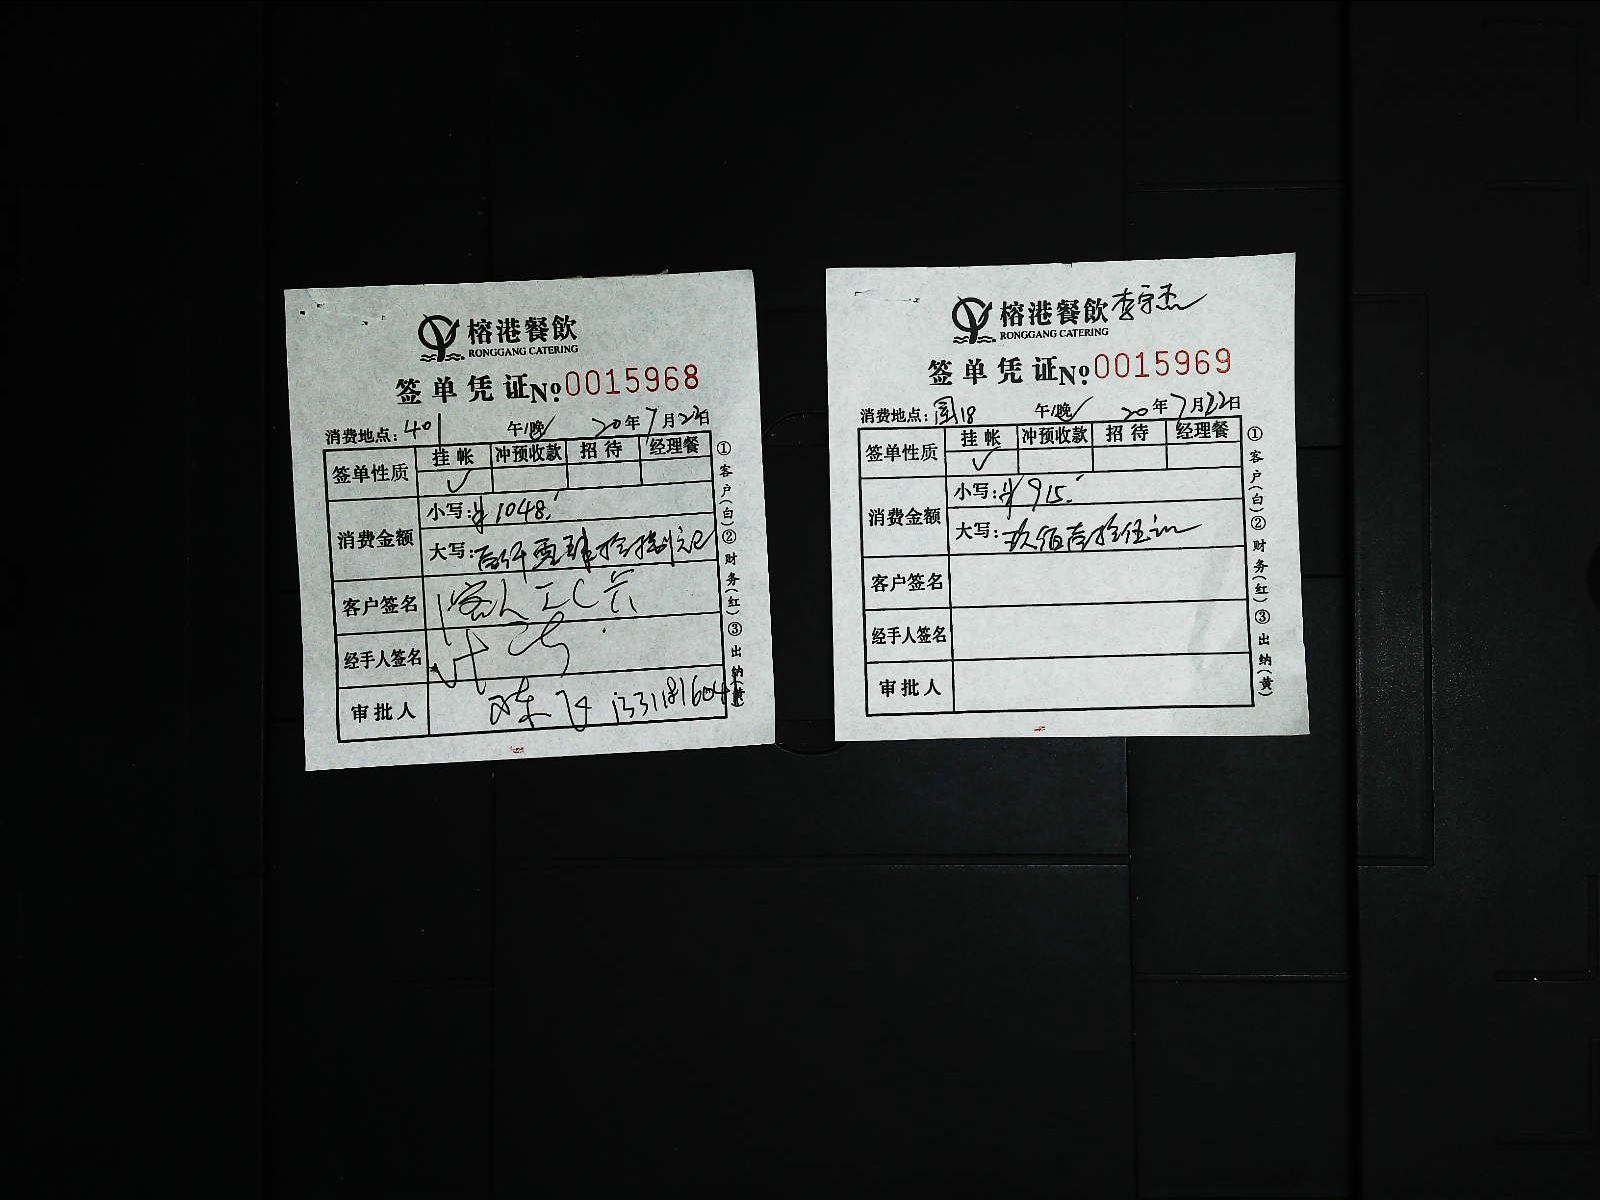 榕港餐飲
RONGGANG CATERING
签单凭证№0015968
消费地点：401 午/晚✓ 20年7月22日
签单性质 挂帐 冲预收款 招待 经理餐
✓
消费金额 小写：¥1048.
大写：
客户签名
经手人签名
审批人
①客户(白)②财务(红)③出纳(黄)
榕港餐飲 李宇杰
RONGGANG CATERING
签单凭证№0015969
消费地点：园18 午/晚✓ 20年7月22日
签单性质 挂帐 冲预收款 招待 经理餐
✓
消费金额 小写：¥915.
大写：玖佰壹拾伍元
客户签名
经手人签名
审批人
①客户(白)②财务(红)③出纳(黄)